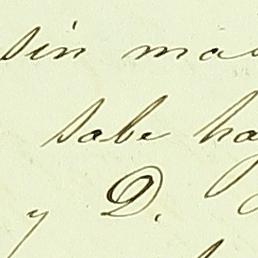 sin ma
sabe ha
y D.